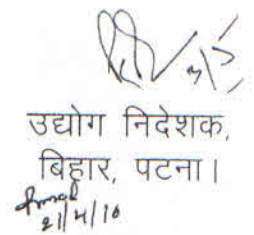 उद्योग निदेशक,
बिहार, पटना।
21/4/10